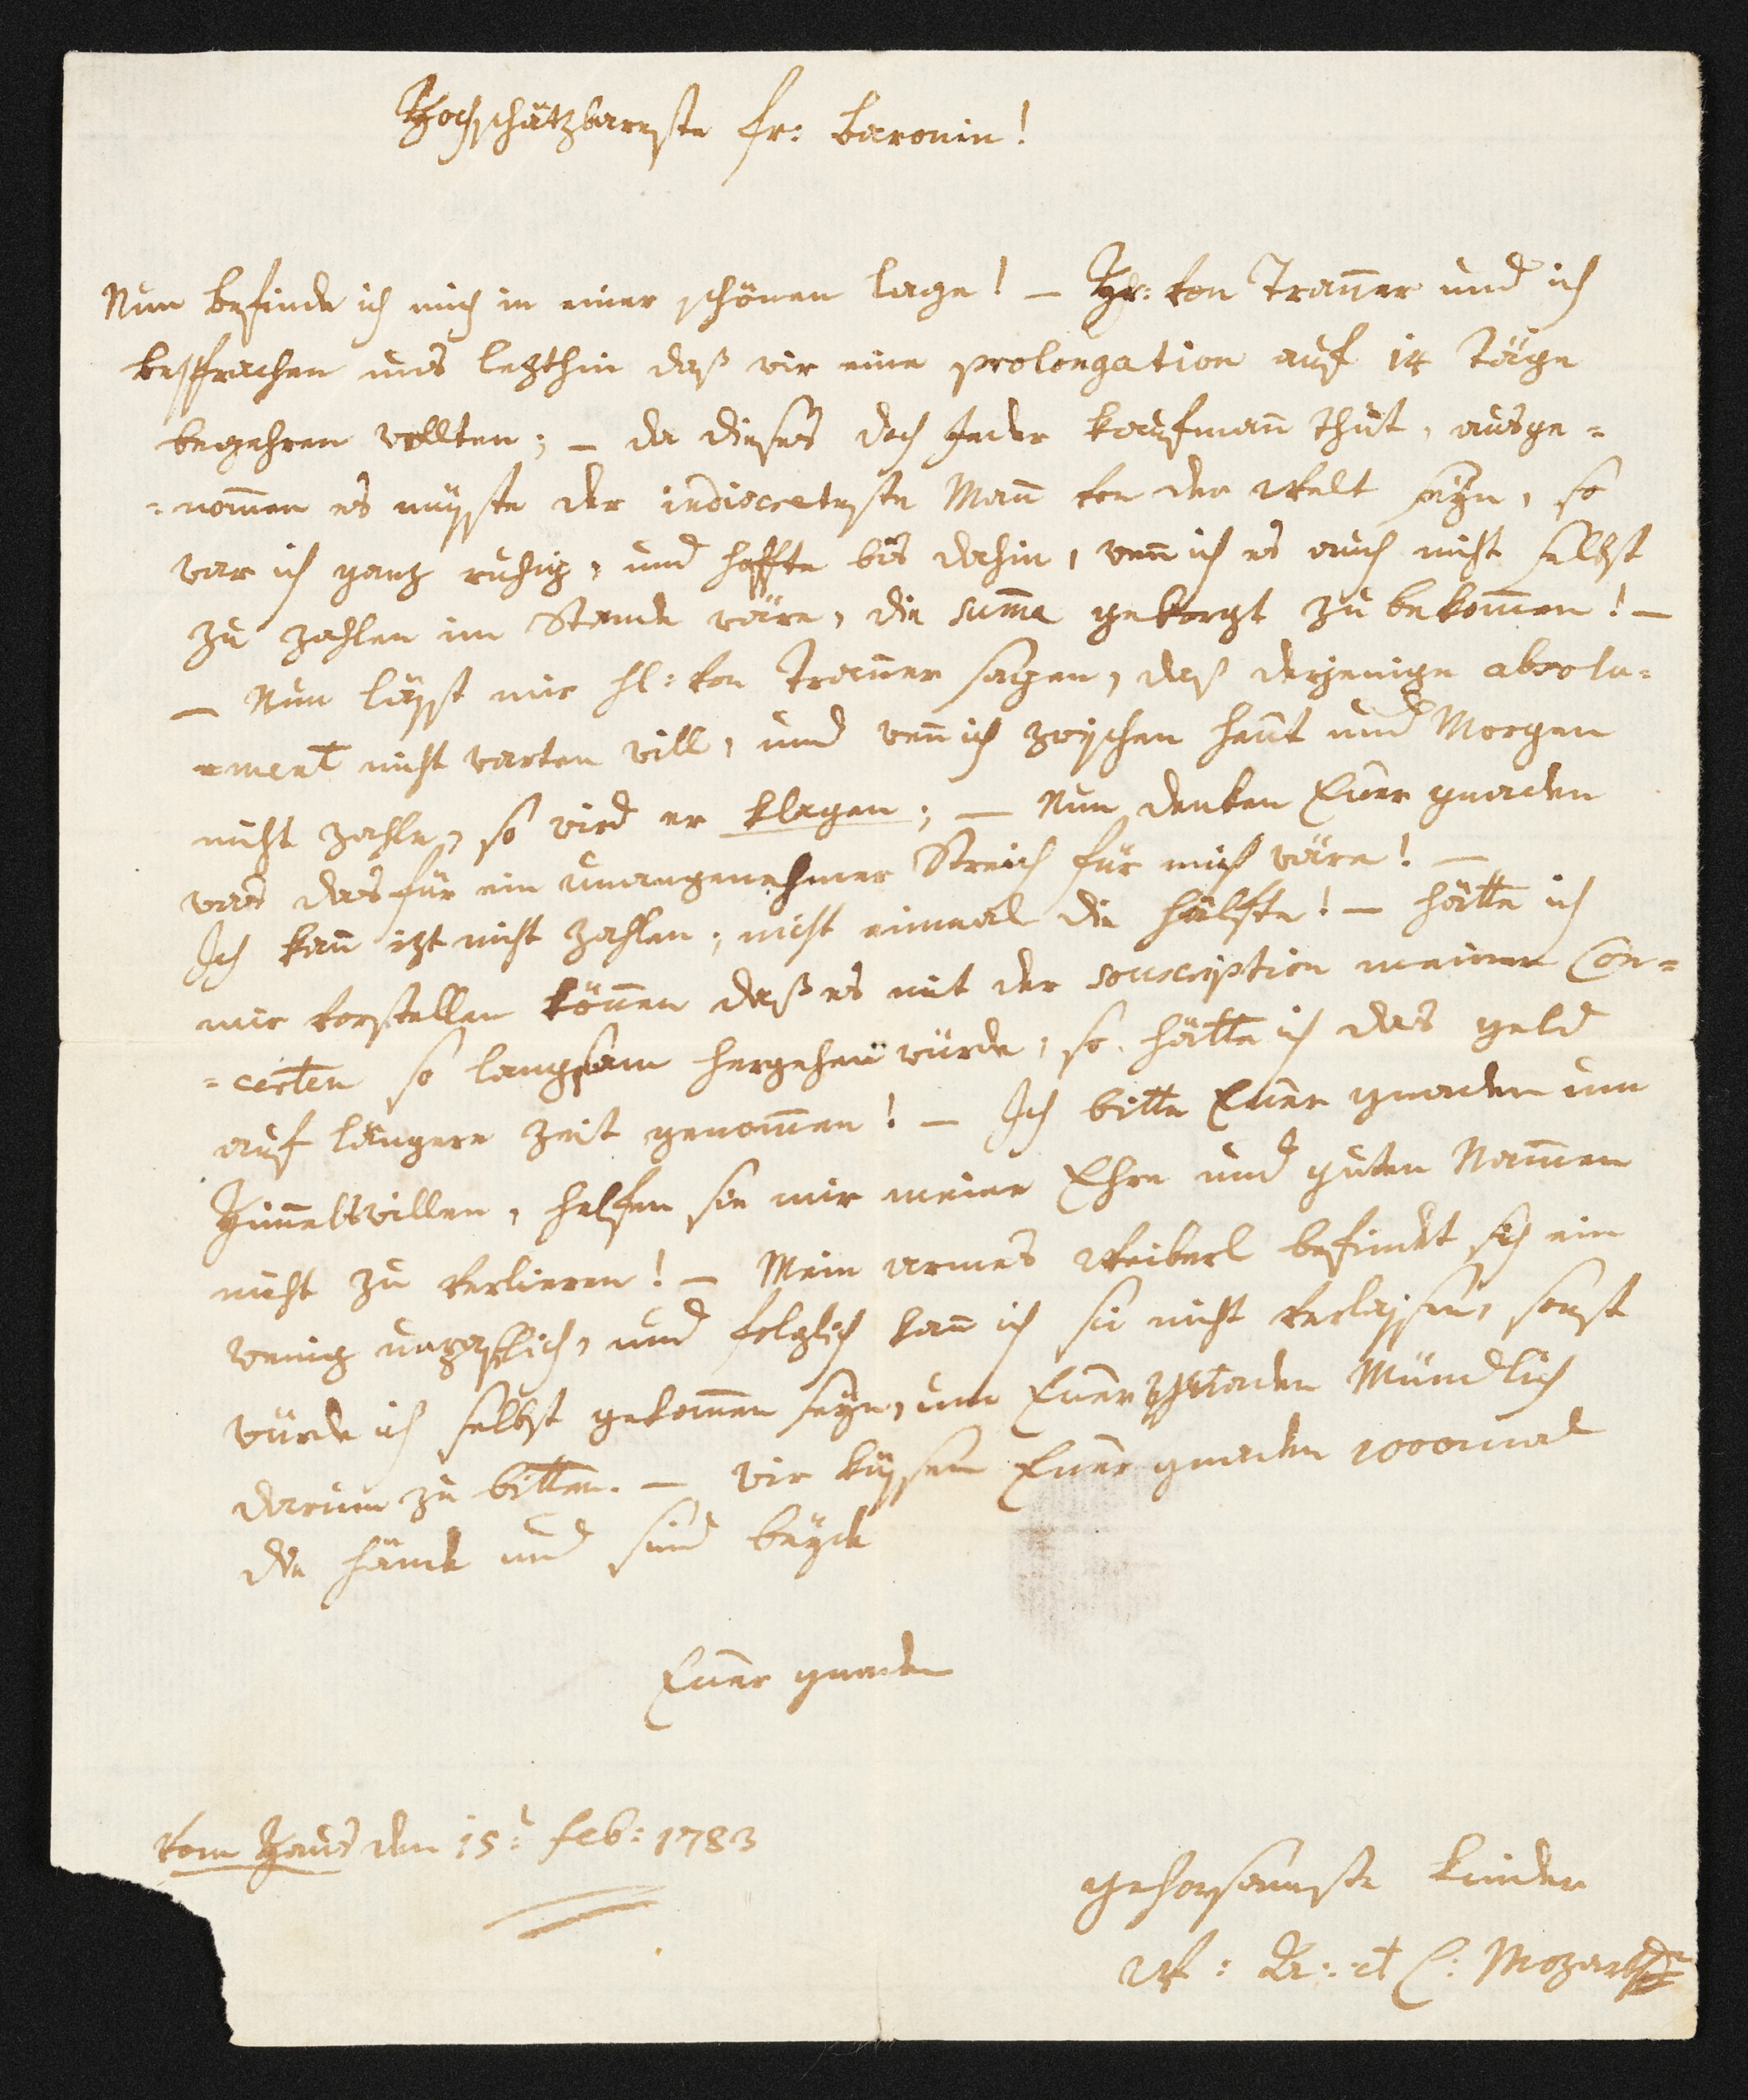 Hochschätzbarste fr: Baronin!
Nun befinde ich mich in einer schönen lage! — Hr: von Tranner und ich
besprachen uns letzthin daß wir eine prolongation auf 14 Täge
begehren wollten; — da dieses doch Jeder kaufmann thut, ausge=
=nommen es müsste der indiscreteste Mann von der Welt seyn, so
war ich ganz ruhig, und hoffte bis dahin, wenn ich es auch nicht selbst
zu zahlen im Stande wäre, die Summa geborgt zu bekommen! —
— Nun lässt mir H: von Tranner sagen, daß derjenige absolu=
=ment nicht warten will, und wenn ich zwischen heut und Morgen
nicht zahle, so wird er klagen; — Nun denken Euer gnaden
was das für ein unangenehmer Streich für mich wäre! —
Ich kann izt nicht zahlen, nicht einmal die hälfte! — hätte ich
mir vorstellen können daß es mit der souscription meiner Con=
=certen so langsam hergehen würde, so hätte ich das geld
auf längere zeit genommen! — Ich bitte Euer gnaden um
Himmelswillen, helfen sie mir meine Ehre und guten Nammen
nicht zu verlieren! — Mein armes Weiberl befindet sich ein
wenig unpässlich, und folglich kann ich sie nicht verlassen, sonst
würde ich selbst gekommen seyn, um Euer Gnaden Mündlich
darum zu bitten. — wir küssen Euer gnaden 1000mal
die hände und sind beyde
Euer gnaden
Vom Haus den 15:t feb: 1783
gehorsamste kinder
W: A: et C: Mozart